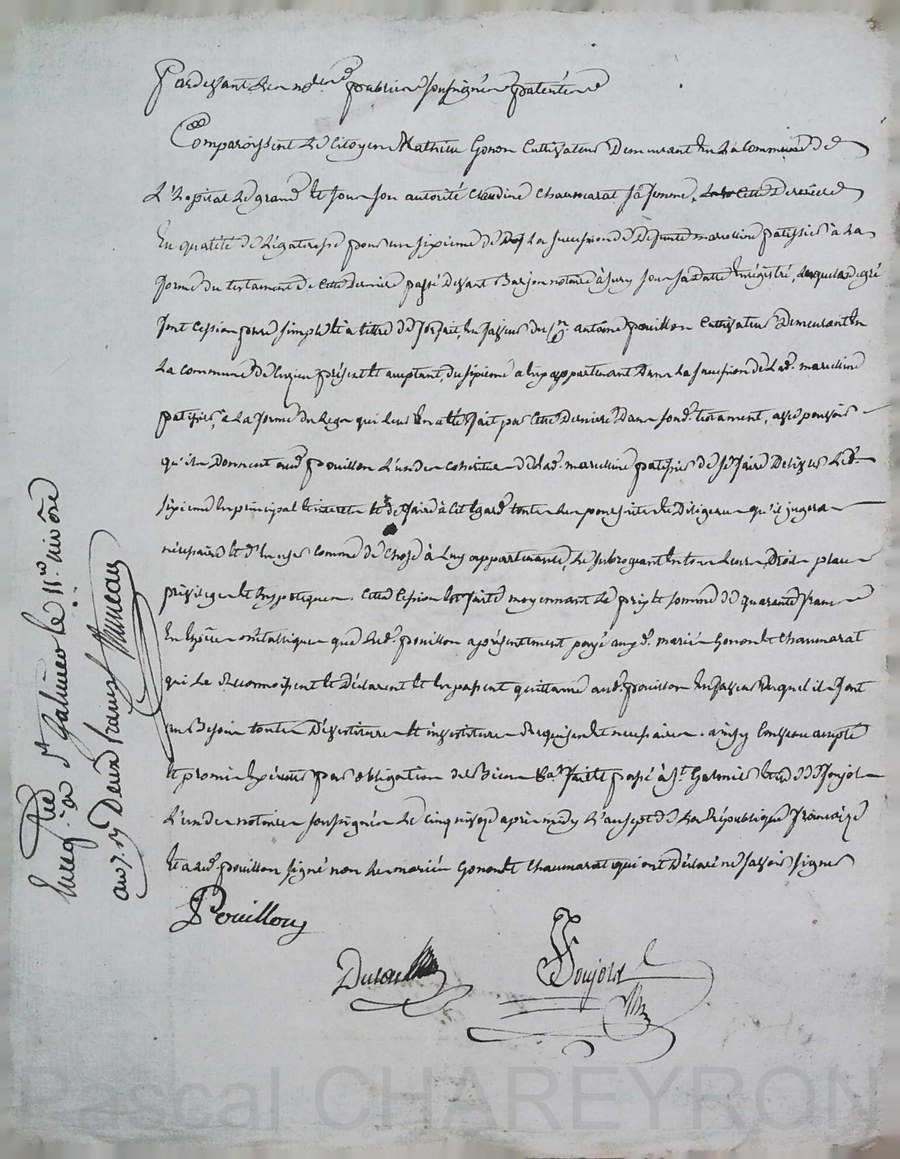 Pardevant les notres publics soussignés patentés
Comparoissent le Citoyen Mathieu Gonon Cultivateur demeurant en la commune de
L'hopital le grand et sous son autorité Claudine Chaumarat sa femme, cette derniere
En qualité de légateresse pour un sixieme de la succession de defunte marcelline patissier à la
forme du testament de cette derniere passé devant Barjon notaire à sury sous sa datte Enregistré, lesquels de gré
font cession pure simple et à titre de forfait, en faveur du cn. antoine pouillon cultivateur demeurant en
La commune de présent et acceptant, du sixieme a eux appartenant dans la succession de lad. marcelline
patissier, à la forme du legs qui leur en a été fait par cette derniere dans sond. testament, avec pouvoir
qu'ils donnent aud. pouillon l'un des cohéritiers de lad. marcelline patissier de se faire délivrer led.
sixieme en principal et interets et de faire à cet égard toutes les poursuites et diligences qu'il jugera
nécessaires et d'en user comme de chose à luy appartenante, le subrogeant en tous leurs droits place
privileges et hypoteques. Cette cession est faite moyennant le prix et somme de quarante francs
En Espèces métalliques que led. pouillon a présentement payé auxd. mariés Gonon et Chaumarat
qui le reconnoissent et déclarent et en passent quittance aud. pouillon en faveur duquel ils font
au Besoin toutes dévestitures et investitures requises et nécessaires. ainsy convenu accepté
et promis Exécuter par obligation de Biens fait et passé à St. Galmier Etude de Soujol
L'un des notaires soussignés le cinq nivoz après midy L'an sept de la République francaize
Et a led. pouillon signé non les mariés Gonon et Chaumarat qui ont déclaré ne savoir signer
Pouillon
Soujol
Enreg. à St Galmier le 11 nivôse
an 7. Deux francs
Pascal CHAREYRON